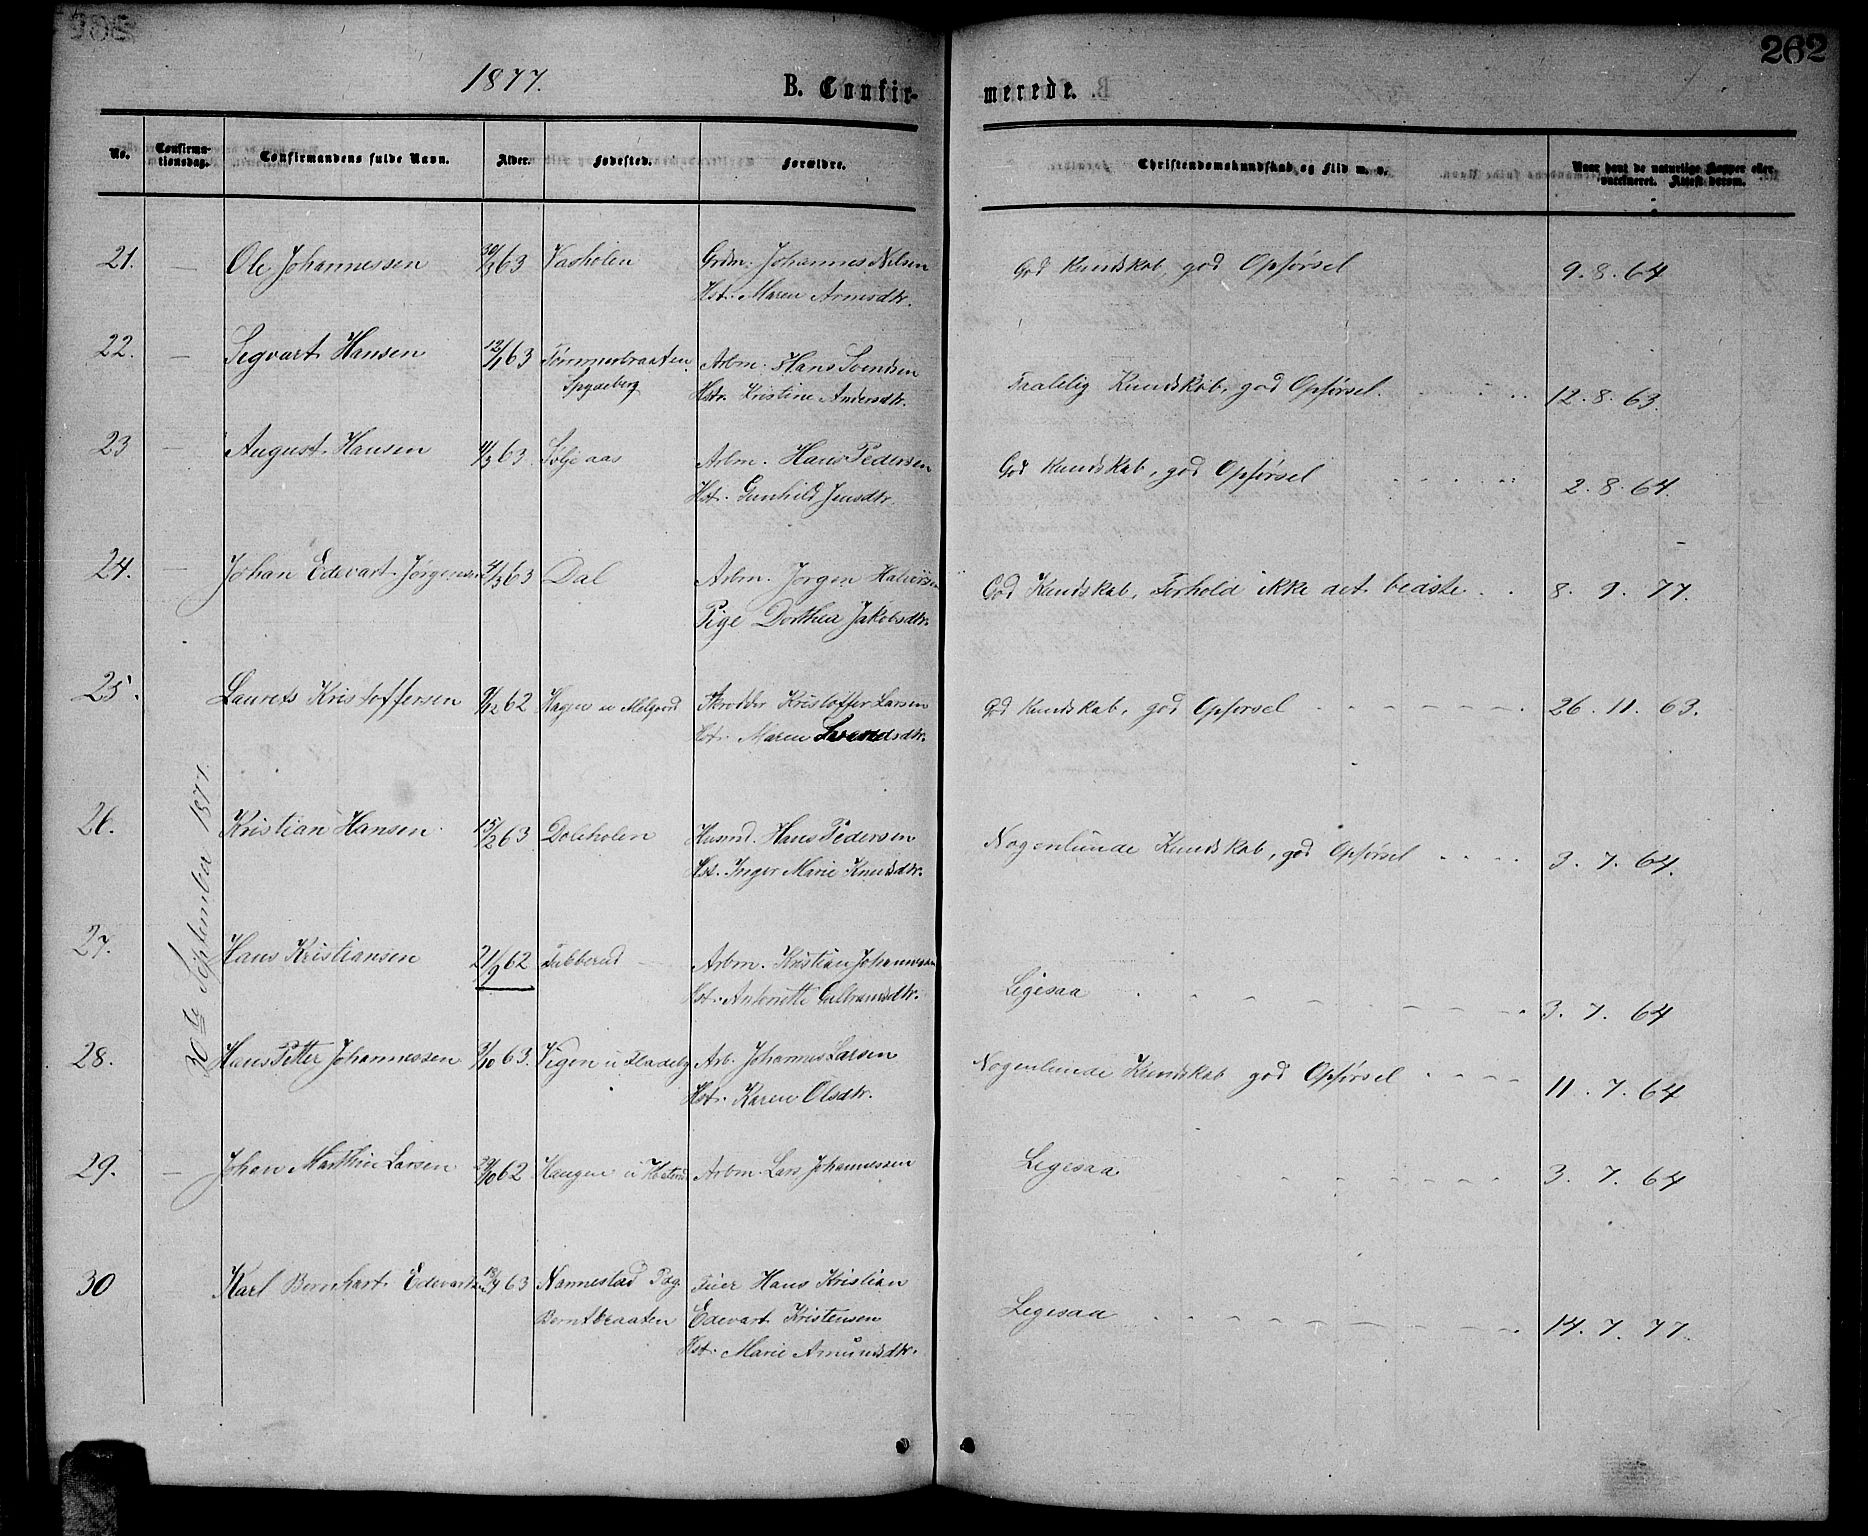 262
1877.
B. Confir-
merede.
No.
Confirma-
tionsdag.
Confirmandens fulde Navn.
Alder.
Fødested.
Forældre.
Christendomskundskab og Flid m. v.
Naar havt de naturlige Kopper eller
vaccineret. Attest derom.
30te September 1877.
21. — Ole Johannessen 30/3 63 Vasholen Grdm. Johannes Nilsen God Kundskab, god Opførsel 9. 8. 64
Hst. Maren Arnesdtr.
22. — Segvart Hansen 12/1 63 Tømmerbraaten Arbm. Hans Svendsen Taalelig Kundskab, god Opførsel. 12. 8. 63.
Spydeberg Hstr. Kristine Andersdtr.
23 — August Hansen 11/3 63. Arbm. Hans Pedersen God Kundskab, god Opførsel 2. 8. 64.
Hst. Gunhild Jensdtr.
24. — Johan Edevart Jørgensen 4/3 63 Dal Arbm. Jørgen Halvorsen God Kundskab, Forhold ikke det bedste 8. 9. 77.
Pige Dorthea Jakobsdtr.
25. Laurets Kristoffersen 9/12 62 Hagen u Skrædder Kristoffer Larsen God Kundskab, god Opførsel 26. 11. 63.
Hst. Maren Svendsdtr.
26. Kristian Hansen 15/2 63 Doleholen Husmd. Hans Pedersen Nogenlunde Kundskab, god Opførsel 3. 7. 64.
Hst. Inger Marie Knudsdtr.
27. Hans Kristiansen 21/9 62 Tubberud Arbm. Kristian Johannessen Ligesaa 3. 7. 64
Hst. Antonette Gulbrandsdtr.
28. Hans Petter Johannessen 3/10 63. Vigen u Fladeby Arb. Johannes Larsen Nogenlunde Kundskab god Opførsel 11. 7. 64
Hst. Karen Olsdtr.
29. — Johan Marthin Larsen 29/10 62 Haugen u Arbm. Lars Johannessen Ligesaa 3. 7. 64
30 Karl Bernhart Edevartsen 18/4 63 Nannestad Pæg. Feier Hans Kristian Ligesaa 14. 7. 77.
Berntbraaten Edevart Kristensen
Hst. Marie Amundsdtr.